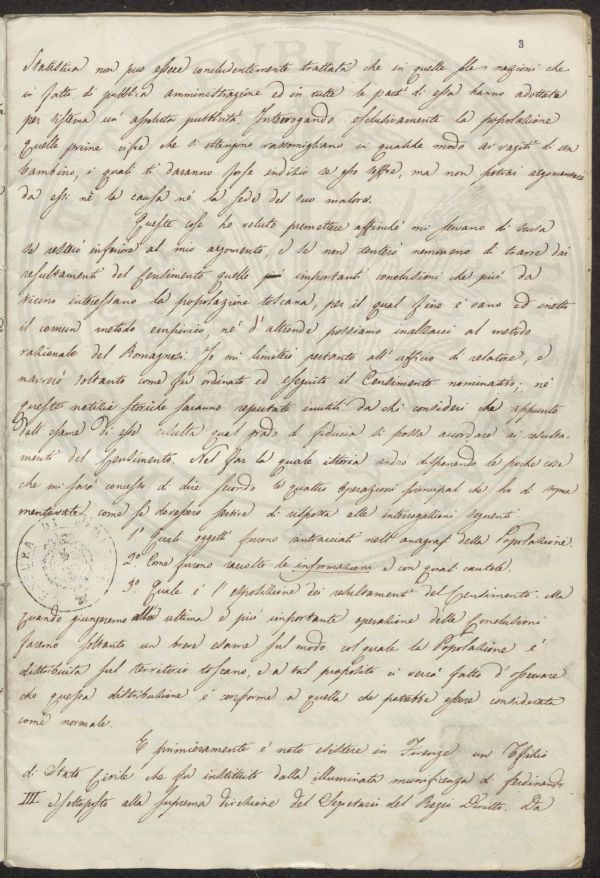 3
Statistica non può essere concludentemente trattata che in quelle sole nazioni che
in fatto di pubblica amministrazione ed in tutte le parti di essa hanno adottata
per sistema un' assoluta pubblicità. Interrogando esclusivamente la popolazione
quelle prime cifre che si ottengono rassomigliano in qualche modo ai vagiti di un
bambino, i quali ti daranno forse indizio se esso soffre, ma non potrai argomentare
da essi nè la causa nè la sede del suo malore.
Queste cose ho voluto premettere affinchè mi servano di scusa
se resterò inferiore al mio argomento, e se non tenterò nemmeno di trarre dai
resultamenti del Censimento quelle importanti conclusioni che più da
vicino interessano la popolazione toscana, per il qual fine è vano ed inetto
il comun metodo empirico, nè d'altronde possiamo inalzarci al metodo
razionale del Romagnosi. Io mi limiterò pertanto all' ufficio di relatore, e
narrerò soltanto come fu ordinato ed eseguito il Censimento nominativo; nè
queste notizie storiche saranno reputate inutili da chi consideri che appunto
dall' esame di esse risulta qual grado di fiducia si possa accordare ai resulta-
menti del Censimento. Nel far la quale istoria andrò disponendo le poche cose
che mi sarà concesso di dire secondo le quattro operazioni principali che ho di sopra
mentovate, come se dovessero servire di risposta alle interrogazioni seguenti:
1.° Quali oggetti furono abbracciati nell' anagrafi della Popolazione.
2.° Come furono raccolte le informazioni e con quali cautele.
3.° Quale è l' esposizione dei resultamenti del Censimento. Ma
quando giungeremo alla ultima e più importante operazione delle Conclusioni
faremo soltanto un breve esame sul modo col quale la Popolazione è
distribuita sul territorio toscano, e a tal proposito ci verrà fatto d' osservare
che questa distribuzione è conforme a quella che potrebbe essere considerata
come normale.
E primieramente è noto esistere in Firenze un Ufizio
di Stato Civile che fu instituito dalla illuminata munificenza di Ferdinando
III e sottoposto alla suprema direzione del Segretario del Regio Diritto. Da